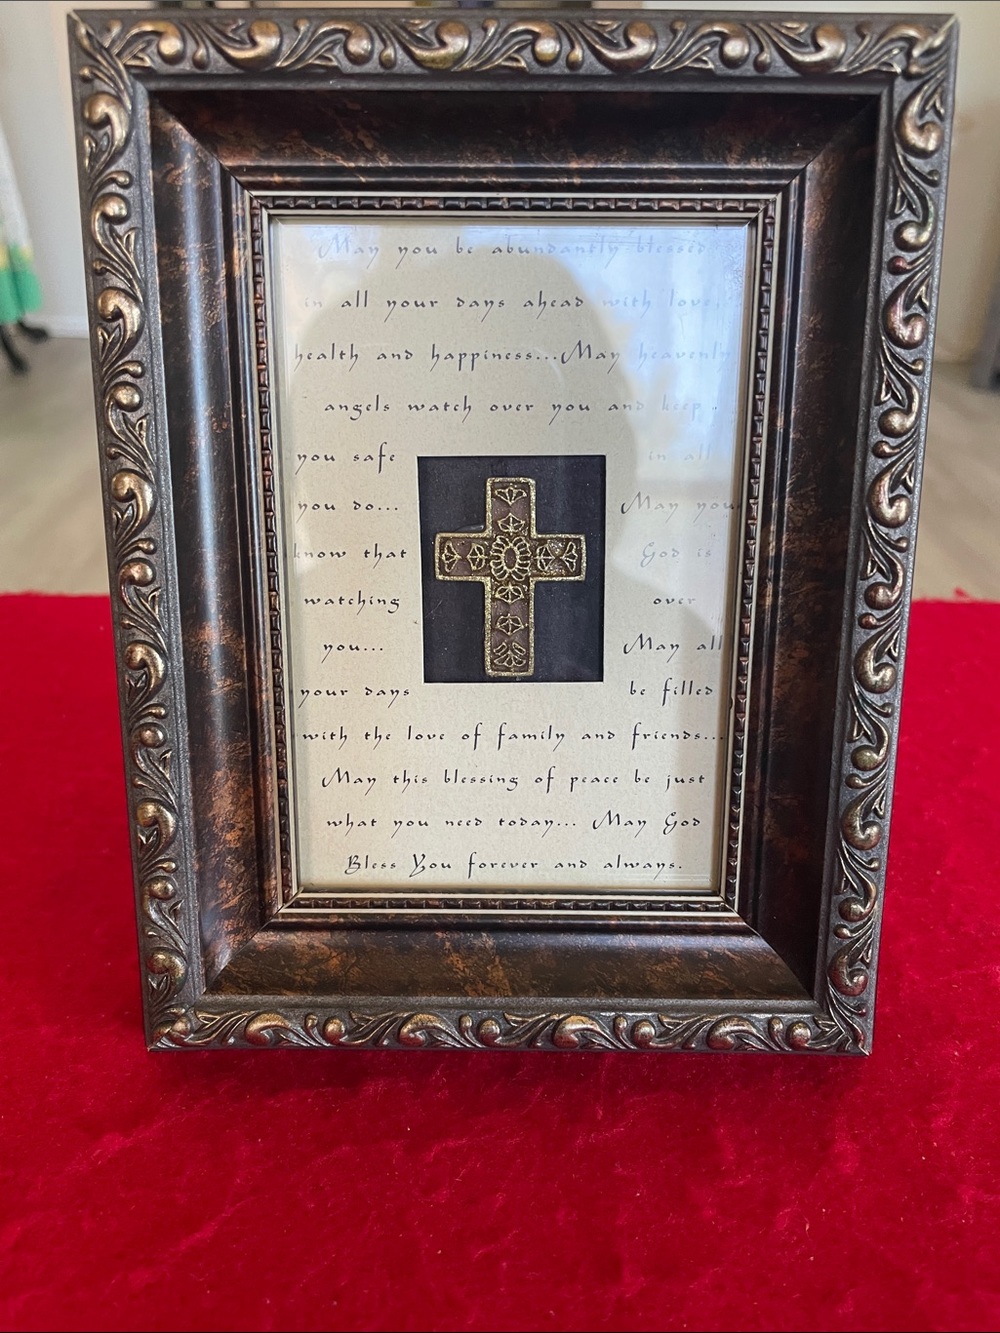 May you be abundantly blessed
in all your days ahead with love,
health and happiness...May heavenly
angels watch over you and keep
you safe in all
you do... May you
know that God is
watching over
you... May all
your days be filled
with the love of family and friends...
May this blessing of peace be just
what you need today... May God
Bless You forever and always.